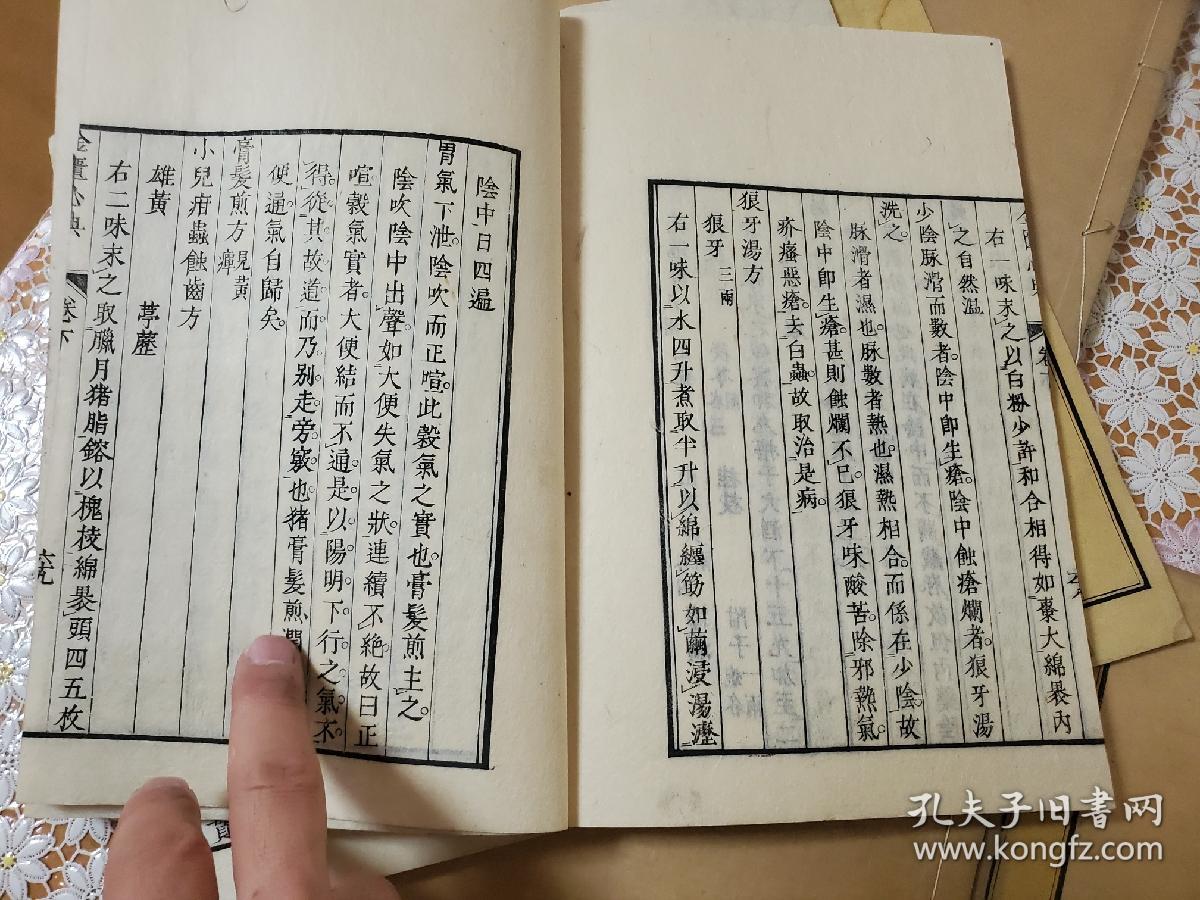 右一味末之以白粉少許和合相得如棗大綿裹內
之自然温
少陰脉滑而數者陰中即生瘡陰中蝕瘡爛者狼牙湯
洗之
脉滑者濕也脉數者熱也濕熱相合而係在少陰故
陰中即生瘡甚則蝕爛不已狼牙味酸苦除邪熱氣
疥瘙惡瘡去白蟲故取治是病
狼牙湯方
狼牙 三兩
右一味以水四升煮取半升以綿纏筯如繭浸湯瀝
陰中日四遍
胃氣下泄陰吹而正喧此穀氣之實也膏髮煎主之
陰吹陰中出聲如大便失氣之狀連續不絶故曰正
喧穀氣實者大便結而不通是以陽明下行之氣不
得從其故道而乃别走旁竅也猪膏髮煎潤
便通氣自歸矣
膏髮煎方 見黃癉
小兒疳蟲蝕齒方
雄黃 葶藶
右二味末之取臘月猪脂鎔以槐枝綿裹頭四五枚
金匱心典 卷下 六九
孔夫子旧书网
www.kongfz.com